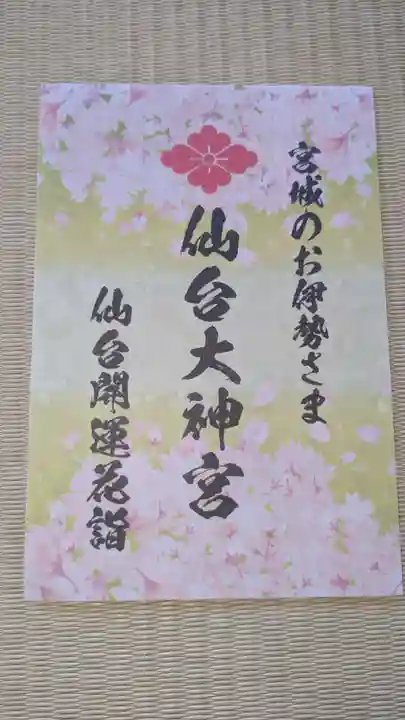 宮城のお伊勢さま
仙台大神宮
仙台開運花詣